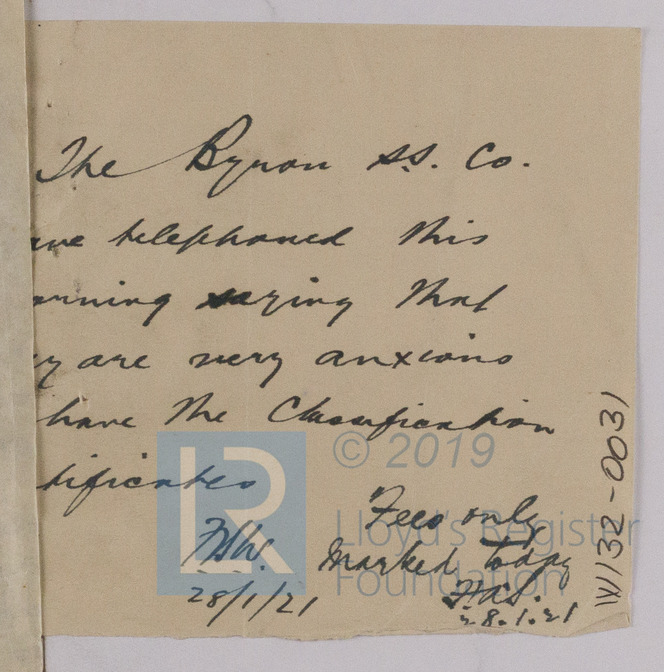 The Byron SS. Co.
ave telephoned this
orning saying that
ey are very anxious
have the Classification
tificates
Fees only
marked today
28/1/21
28.1.21
W132-0031
© 2019
LR
Lloyd's Register
Foundation